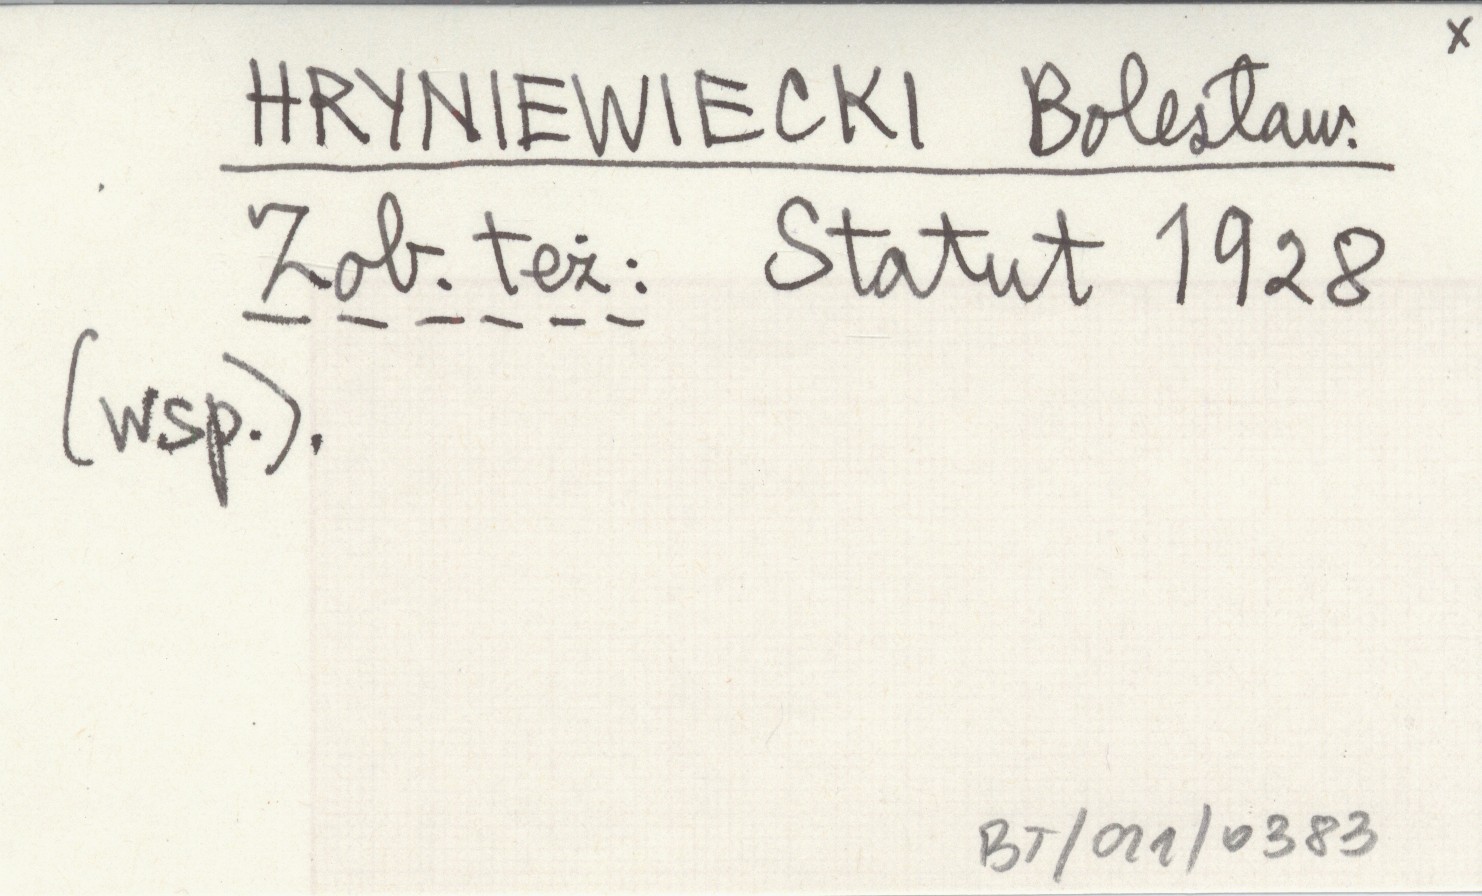 x
HRYNIEWIECKI Bolesław.
Zob. też: Statut 1928
(wsp.).
BT/011/0383